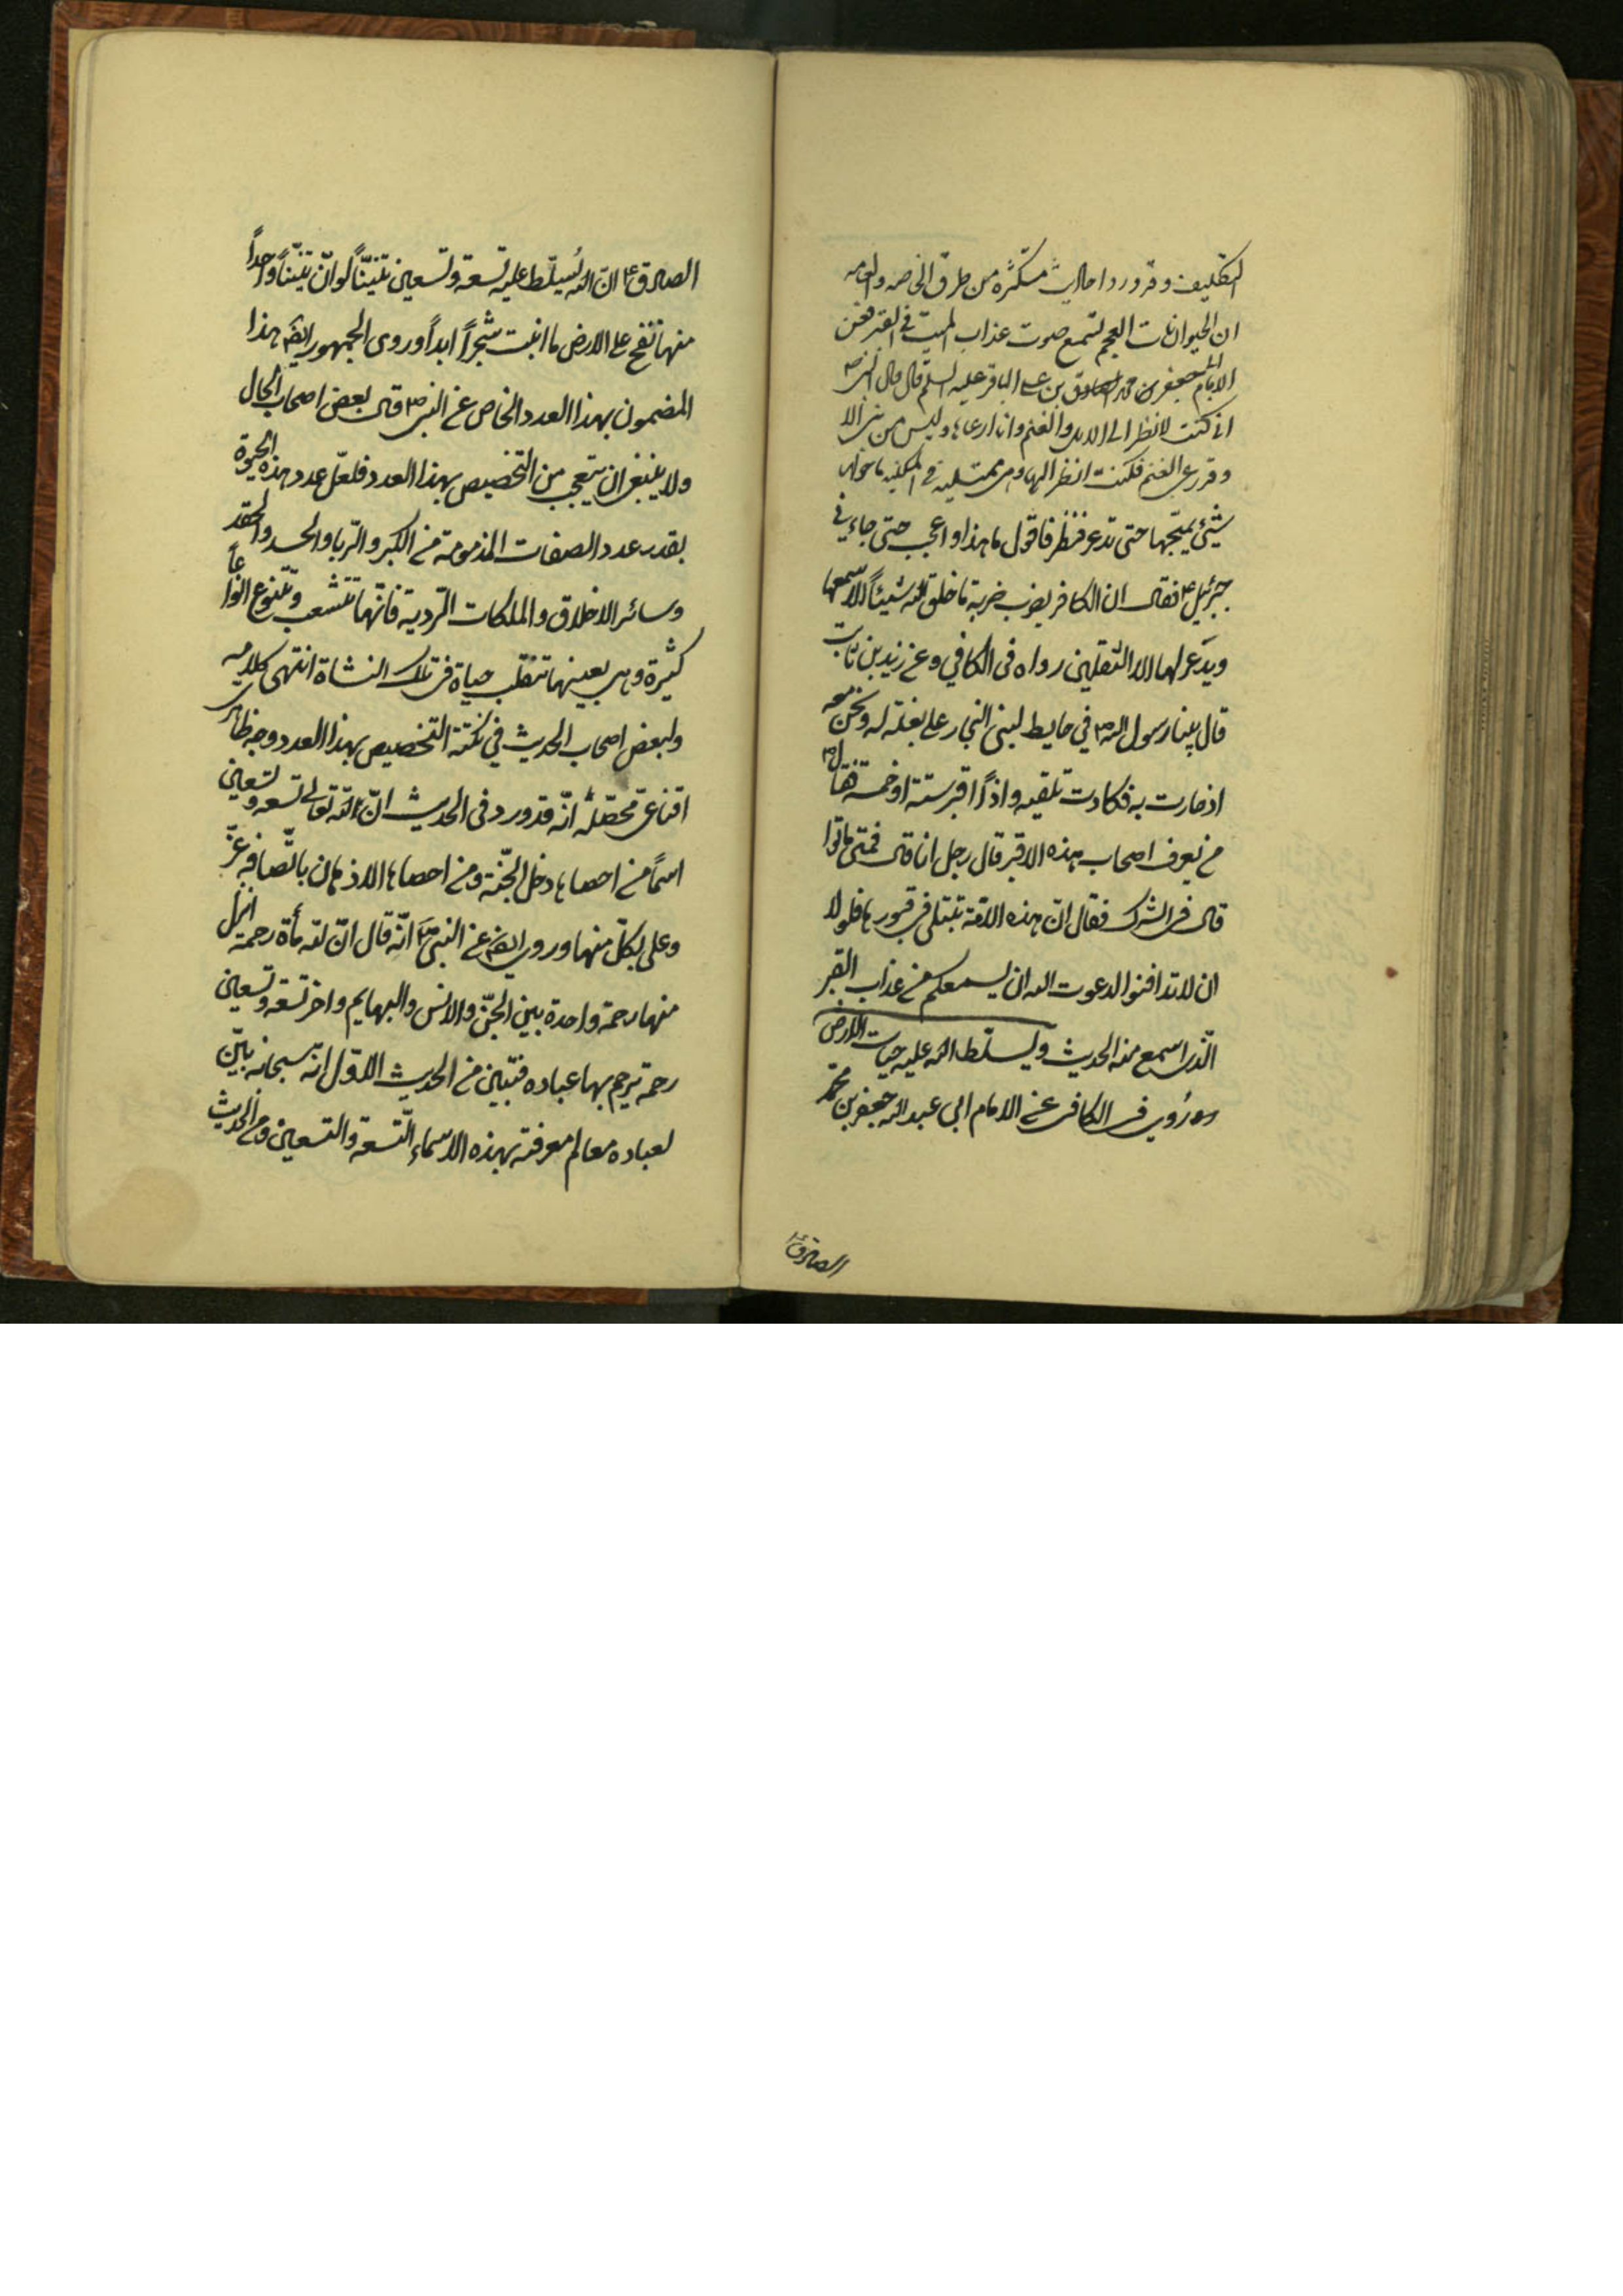 التكليف وقد ورد احاديث متكثره من طرق الخاصه والعامه
ان الحيوانات العجم لتسمع صوت عذاب الميت في القبر فعن
الامام جعفر محمد بن علي الباقر عليه السلم قال قال النبي ص
اني كنت لانظر الى الابل والغنم وانا ارعاها وليس من نبي الا
وقد رعى الغنم فكنت انظر اليها وهي متمكنة في المكينه ما حولها
شيئ يهيجها حتى تذعر فتطير فاقول ما هذا واعجب حتى جاءني
جبرئيل ع فقال ان الكافر يضرب ضربة ما خلق الله شيئاً الا سمعها
ويذعر لها الا الثقلين رواه في الكافي وعن زيد بن ثابت
قال بينا رسول الله ص في حايط لبني النجار على بغلة له ونحن معه
اذ حادت به فكادت تلقيه واذا اقبر ستة او خمسة فقال ص
من يعرف اصحاب هذه الاقبر قال رجل انا قال فمتى ماتوا
قال في الشرك فقال ان هذه الامة تبتلى في قبورها فلولا
ان لا تدافنوا لدعوت الله ان يسمعكم من عذاب القبر
الذي اسمع منه الحديث ويسلط الله عليه حيات الارض
روي في الكافي عن الامام ابي عبد الله جعفر بن محمد
الصادق ع
الصادق ع انّ الله يُسلّط عليه تسعة وتسعين تنيّناً لو انّ تنيّناً واحداً
منها نفخ على الارض ما انبت شجراً ابداً وروى الجمهور ايضا هذا
المضمون بهذا العدد الخاص عن النبي ص قال بعض اصحاب الحال
ولا ينبغي ان يتعجب من التخصيص بهذا العدد فلعلّ عدد هذه الحيوة
بقدر عدد الصفات المذمومة من الكبر والرّيا والحسد والحقد
وسائر الاخلاق والملكات الرّدية فانّها تتشعب وتتنوع انواعاً
كثيرة وهي بعينها تنقلب حياة في تلك النشاة انتهى كلامه
ولبعض اصحاب الحديث في نكتة التخصيص بهذا العدد وجه ظاهري
اقناعي محصّله انّه قد ورد في الحديث انّ لله تعالى تسعة وتسعين
اسماً من احصاها دخل الجنّة ومن احصاها الاذعان باتّصافه عزّ
وعلى بكلّ منها وروي ايضا عن النبي ص انّه قال انّ لله مأة رحمة انزل
منها رحمة واحدة بين الجنّ والانس والبهايم واخر تسعة وتسعين
رحمة يرحم بها عباده فتبين من الحديث الاوّل انّه سبحانه بيّن
لعباده معالم معرفته بهذه الاسماء التّسعة والتسعين ومن الحديث